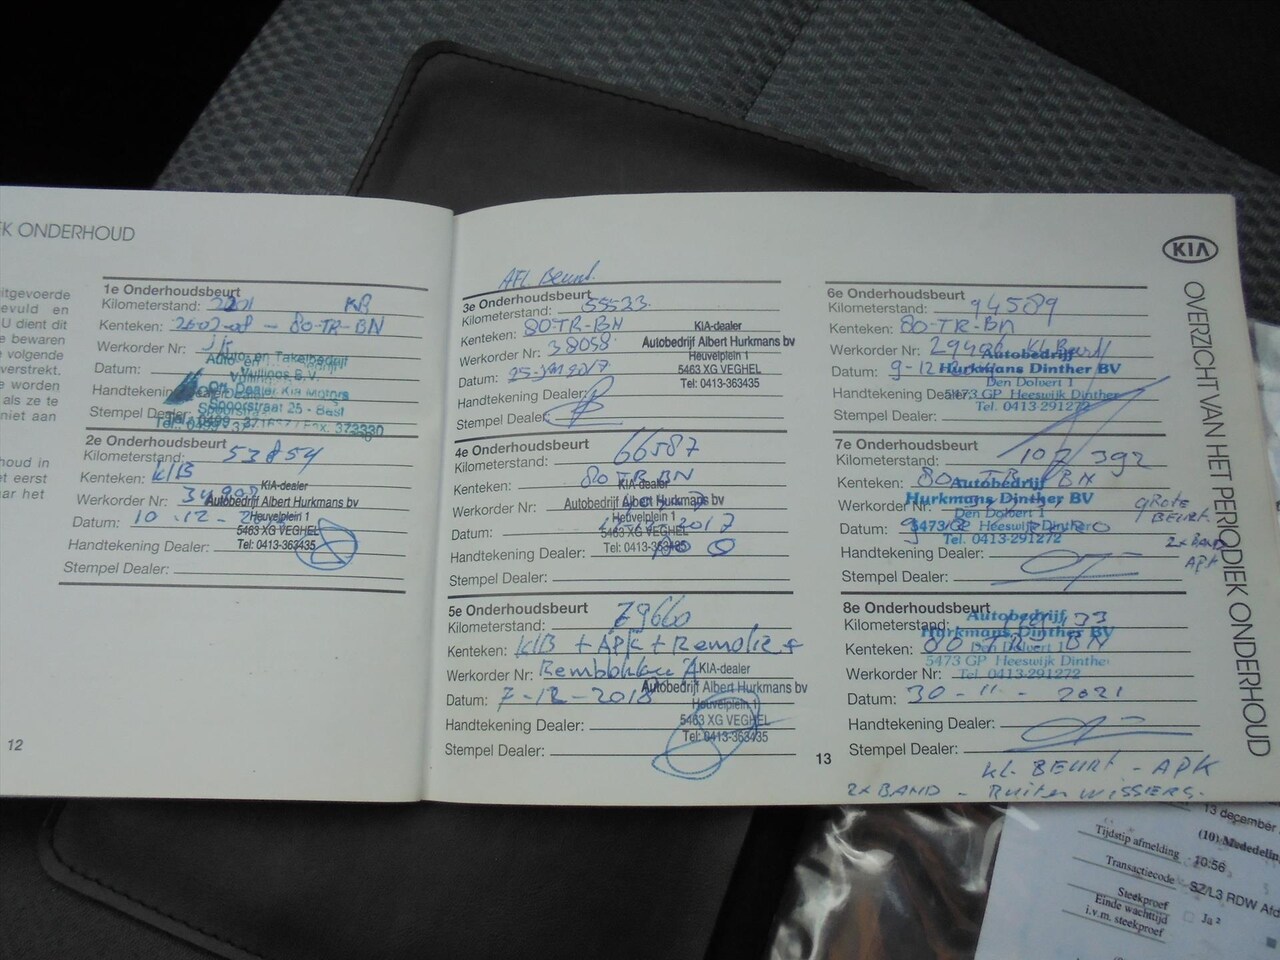 EK ONDERHOUD
itgevoerde
evuld en
U dient dit
e bewaren
volgende
verstrekt.
e worden
als ze te
niet aan
houd in
et eerst
aar het
1e Onderhoudsbeurt
Kilometerstand: KB
Kenteken: 80-TR-BN
Werkorder Nr:
Datum:
Handtekening
Stempel Dealer
Spoorstraat 25 - Best
2e Onderhoudsbeurt
Kilometerstand: 53854
Kenteken: KlB
Werkorder Nr:
Datum: 10-12-
Handtekening Dealer:
Stempel Dealer:
KIA-dealer
Autobedrijf Albert Hurkmans bv
Heuvelplein 1
5463 XG VEGHEL
Tel: 0413-363435
12
Afl. Beurt.
3e Onderhoudsbeurt
Kilometerstand: 55523
Kenteken: 80-TR-BN
Werkorder Nr: 38058
Datum: 25-
Handtekening Dealer:
Stempel Dealer:
KIA-dealer
Autobedrijf Albert Hurkmans bv
Heuvelplein 1
5463 XG VEGHEL
Tel: 0413-363435
4e Onderhoudsbeurt
Kilometerstand: 66587
Kenteken: 80 TR-BN
Werkorder Nr:
Datum: 2017
Handtekening Dealer:
Stempel Dealer:
KIA-dealer
Autobedrijf Albert Hurkmans bv
Heuvelplein 1
5463 XG VEGHEL
Tel: 0413-363435
5e Onderhoudsbeurt
Kilometerstand: 79660
Kenteken: KlB + APK +
Werkorder Nr:
Datum: 7-12-2018
Handtekening Dealer:
Stempel Dealer:
KIA-dealer
Autobedrijf Albert Hurkmans bv
Heuvelplein 1
5463 XG VEGHEL
Tel: 0413-363435
6e Onderhoudsbeurt
Kilometerstand: 94589
Kenteken: 80-TR-BN
Werkorder Nr: Kl. Beurt
Datum: 9-12
Handtekening Dealer
Stempel Dealer:
Autobedrijf
Hurkmans Dinther BV
Den Dolvert 1
5473 GP Heeswijk Dinther
Tel. 0413-291272
7e Onderhoudsbeurt
Kilometerstand: 107392
Kenteken: 80 TR BN
Werkorder Nr:
Datum:
Handtekening Dealer:
Stempel Dealer:
Autobedrijf
Hurkmans Dinther BV
Den Dolvert 1
5473 GP Heeswijk Dinther
Tel. 0413-291272
GROTE
BEURT.
2x BAND
APK
8e Onderhoudsbeurt
Kilometerstand:
Kenteken: 80 TR-BN
Werkorder Nr:
Datum: 30-11-2021
Handtekening Dealer:
Stempel Dealer:
Autobedrijf
Hurkmans Dinther BV
Den Dolvert 1
5473 GP Heeswijk Dinther
Tel. 0413-291272
KL. BEURT - APK
2x BAND - Ruiten WISSERS.
13
KIA
OVERZICHT VAN HET PERIODIEK ONDERHOUD
13 december
(10) Mededelin
Tijdstip afmelding 10:56
Transactiecode SZ/L3 RDW Afd
Steekproef Ja 2
Einde wachttijd
i.v.m. steekproef